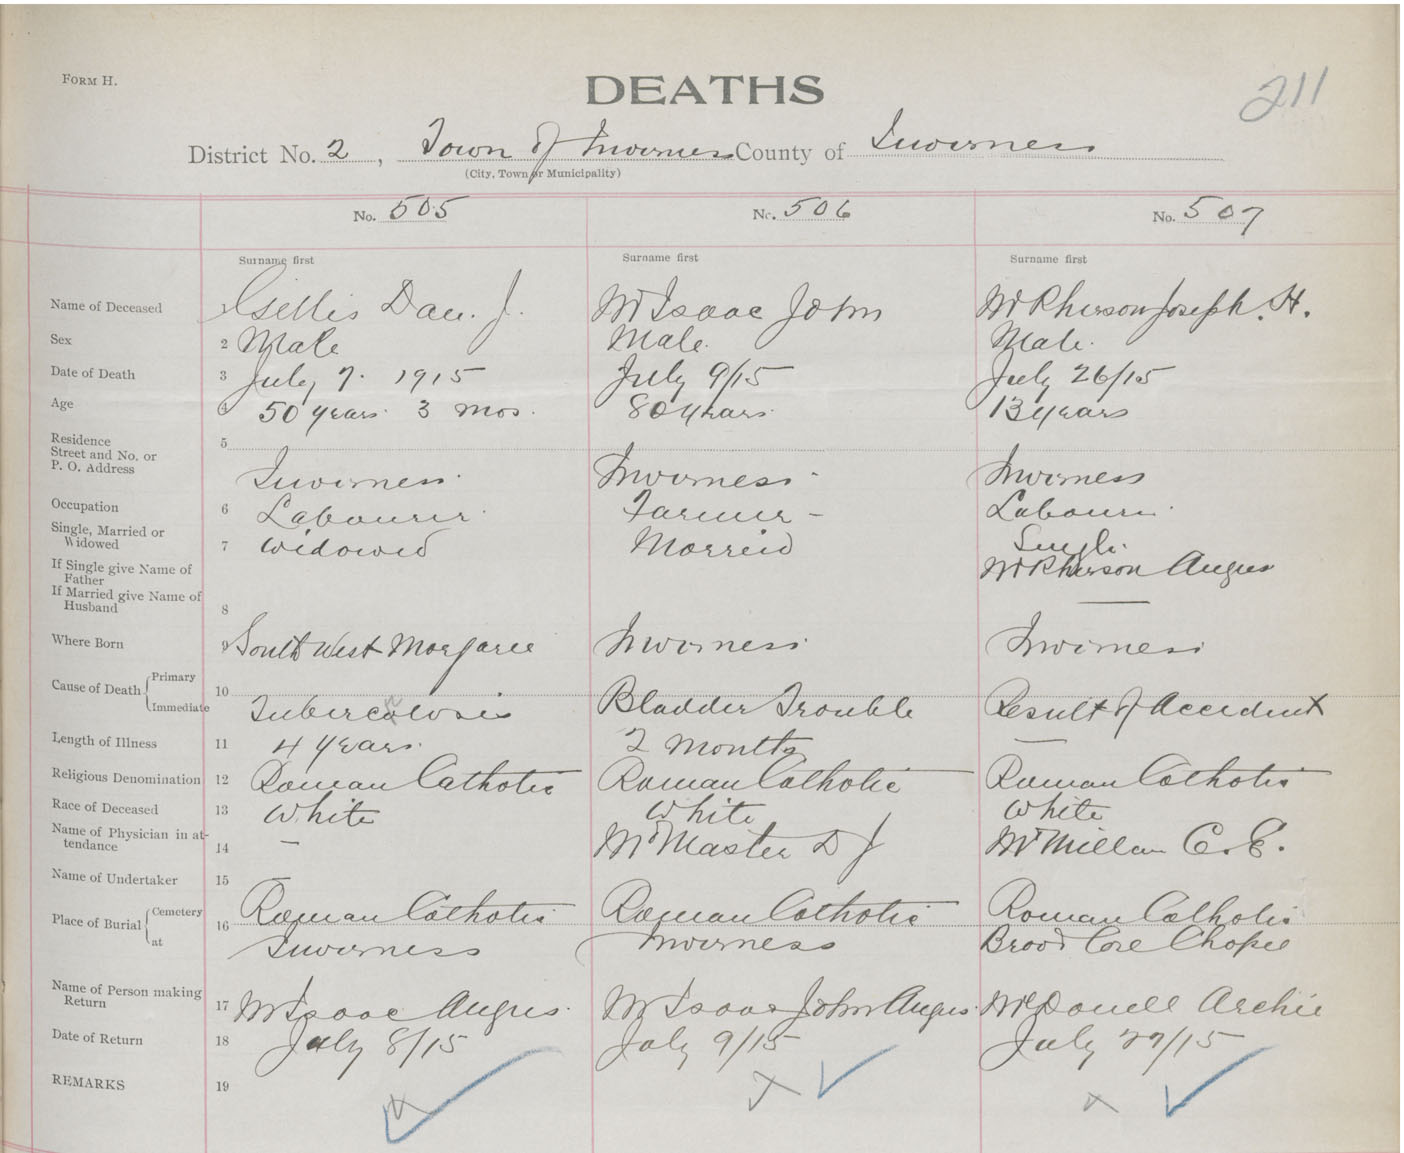 FORM H.
DEATHS
211
District No. 2, Town of Inverness County of Inverness
(City, Town or Municipality)
No. 505 No. 506 No. 507
Surname first Surname first Surname first
Name of Deceased 1 Gillis Dan. J. McIsaac John McPherson Joseph. H.
Sex 2 Male Male. Male.
Date of Death 3 July 7. 1915 July 9/15 July 26/15
Age 4 50 years 3 mos. 80 years 13 years
Residence
Street and No. or
P. O. Address 5 Inverness Inverness Inverness
Occupation 6 Labourer Farmer - Labourer
Single, Married or
Widowed 7 Widowed Married Single
If Single give Name of
Father McPherson Angus
If Married give Name of
Husband 8 —
Where Born 9 South West Margaree Inverness Inverness
Cause of Death { Primary
Immediate 10 Tuberculosis Bladder Trouble Result of Accident
Length of Illness 11 4 years 2 months —
Religious Denomination 12 Roman Catholic Roman Catholic Roman Catholic
Race of Deceased 13 White White White
Name of Physician in at-
tendance 14 - McMaster D J McMillan C. E.
Name of Undertaker 15 —
Place of Burial { Cemetery 16 Roman Catholic Roman Catholic Roman Catholic
at Inverness Inverness Broad Cove Chapel
Name of Person making
Return 17 McIsaac Angus. McIsaac John Angus. McDonell Archie
Date of Return 18 July 8/15 July 9/15 July 27/15
REMARKS 19